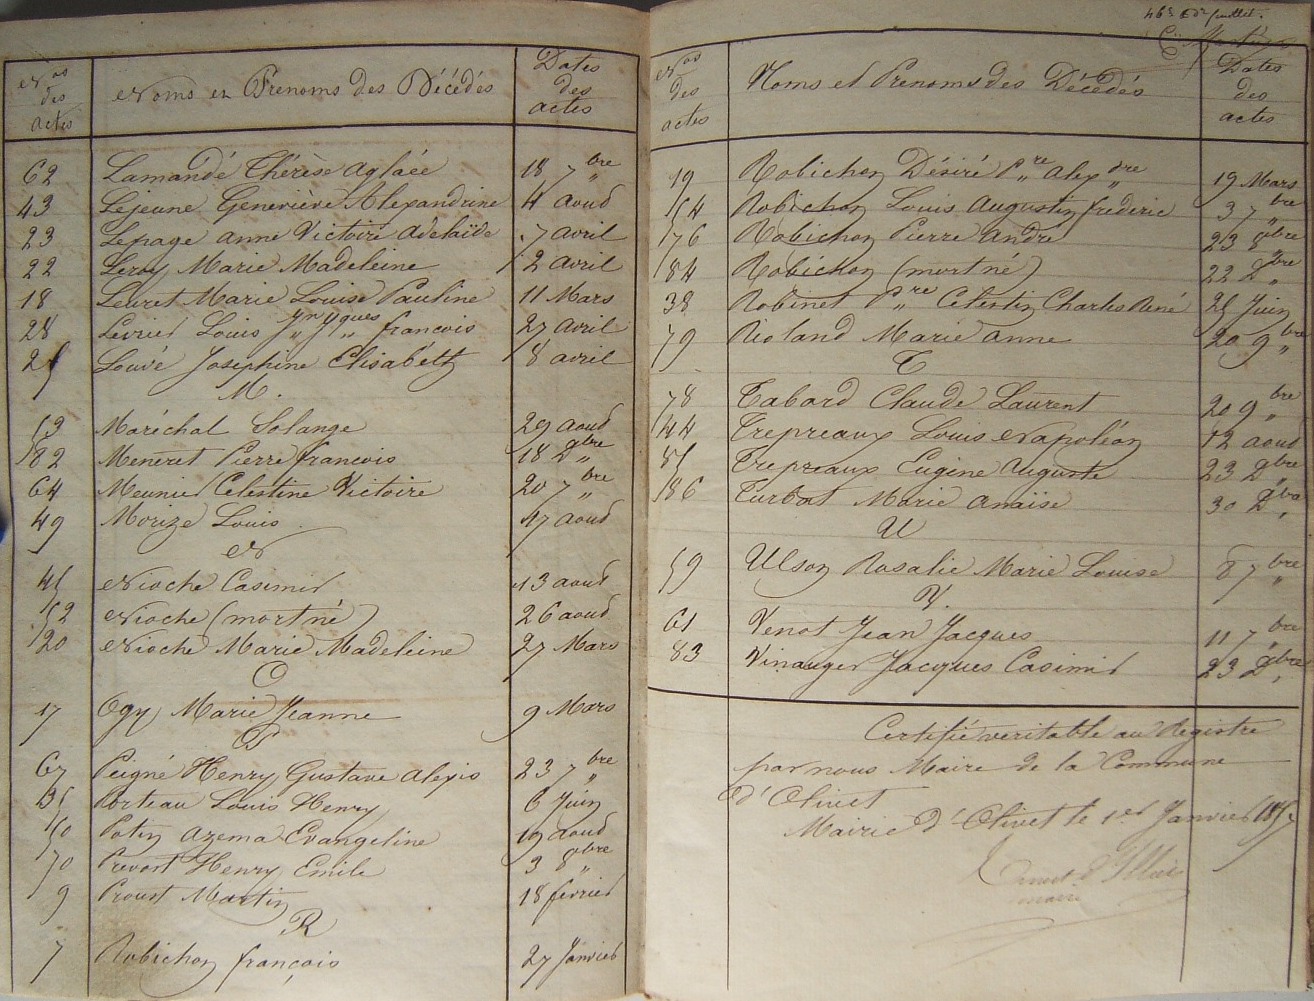 Nos des actes Noms et Prénoms des Décédés Dates des actes
62 Lamandé Thérèse aglaée 18 7bre
43 Lejeune Geneviève Alexandrine 4 aoud
23 Lepage anne Victoire adelaïde 7 avril
22 Leroy Marie Madeleine 2 avril
18 Leuret Marie Louise Pauline 11 Mars
28 Levrier Louis Jn Jques francois 27 avril
25 Louvé Josephine Elisabeth 8 avril
M.
53 Maréchal Solange 29 aoud
82 Meneret Pierre francois 18 Dbre
64 Meunier Celestine Victoire 20 7bre
49 Morize Louis 17 aoud
N
45 Nioche Casimir 13 aoud
52 Nioche (mort né) 26 aoud
20 Nioche Marie Madeleine 27 Mars
O
17 Ogy Marie Jeanne 9 Mars
P
67 Peigné Henry Gustave alexis 23 7bre
35 Porteau Louis Henry 6 Juin
50 Potin azema Evangeline 19 aoud
70 Prevost Henry Emile 3 8bre
9 Proust Martin 18 fevrier
R
7 Robichon françois 27 Janvier
46e et dr feuillet.
Nos des actes Noms et Prenoms des Décédés Dates des actes
19 Robichon Désiré Pre alexdre 19 Mars
54 Robichon Louis Augustin frederic 3 7bre
76 Robichon Pierre andré 23 8bre
84 Robichon (mort né) 22 Dbre
38 Robinet Pre Celestin Charles René 25 Juin
79 Rioland Marie anne 20 9bre
T
78 Tabard Claude Laurent 20 9bre
44 Trepreaux Louis Napoléon 12 aoud
85 Trepreaux Eugène Auguste 23 Dbre
86 Turbat Marie anaïse 30 Dbre
U
59 Ulson Rosalie Marie Louise 8 7bre
V.
61 Venot Jean Jacques 11 7bre
83 Vinauger Jacques Casimir 23 Dbre
Certifié veritable au Registre
par nous Maire de la Commune
d'Olivet
Mairie d'Olivet le 1er Janvier
maire